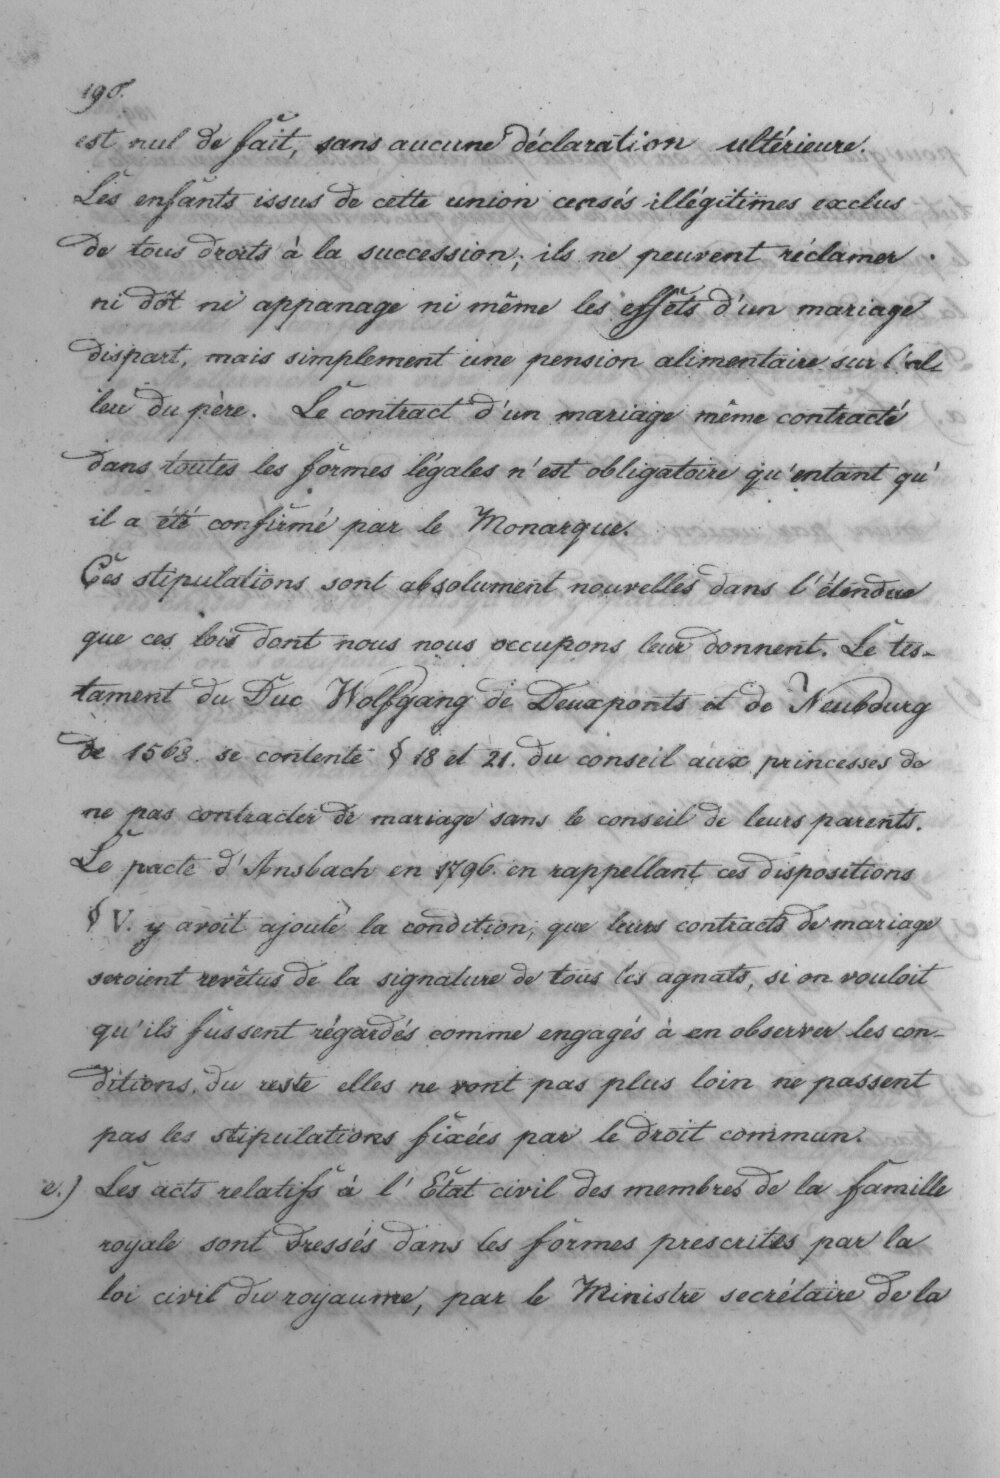 190.
est nul de fait, sans aucune déclaration ultérieure.
Les enfants issus de cette union censés illégitimes exclus
de tous droits à la succession; ils ne peuvent réclamer
ni dôt ni appanage ni même les effets d'un mariage
dispart, mais simplement une pension alimentaire sur l'al
leu du père. Le contract d'un mariage même contracté
dans toutes les formes légales n'est obligatoire qu'entant qu'
il a été confirmé par le Monarque.
Ces stipulations sont absolument nouvelles dans l'étendue
que ces lois dont nous nous occupons leur donnent. Le tes-
tament du Duc Wolfgang de Deuxponts et de Neubourg
de 1568. se contente § 18 et 21. du conseil aux princesses de
ne pas contracter de mariage sans le conseil de leurs parents.
Le pacte d'Ansbach en 1796. en rappellant ces dispositions
§ V. y avoit ajouté la condition, que leurs contracts de mariage
seroient revêtus de la signature de tous les agnats, si on vouloit
qu'ils fussent régardés comme engagés à en observer les con-
ditions, du reste elles ne vont pas plus loin ne passent
pas les stipulations fixées par le droit commun.
e.) Les acts relatifs à l'Etat civil des membres de la famille
royale sont dressés dans les formes prescrites par la
loi civil du royaume, par le Ministre secrétaire de la